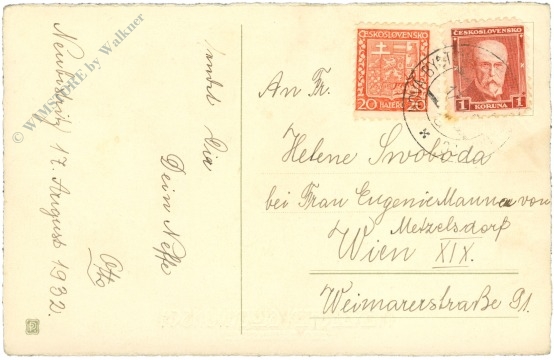 © WWW.STORE by Walkner
Neubistritz 17. August 1932.
sendet Dir
Dein Neffe
Otto
ČESKOSLOVENSKO
20 HALÉŘŮ 20
ČESKOSLOVENSKO
1 KORUNA 1
An Fr.
Helene Swoboda
bei Frau Eugenie Manner von
Metzelsdorf
Wien XIX.
Weimarerstraße 91.